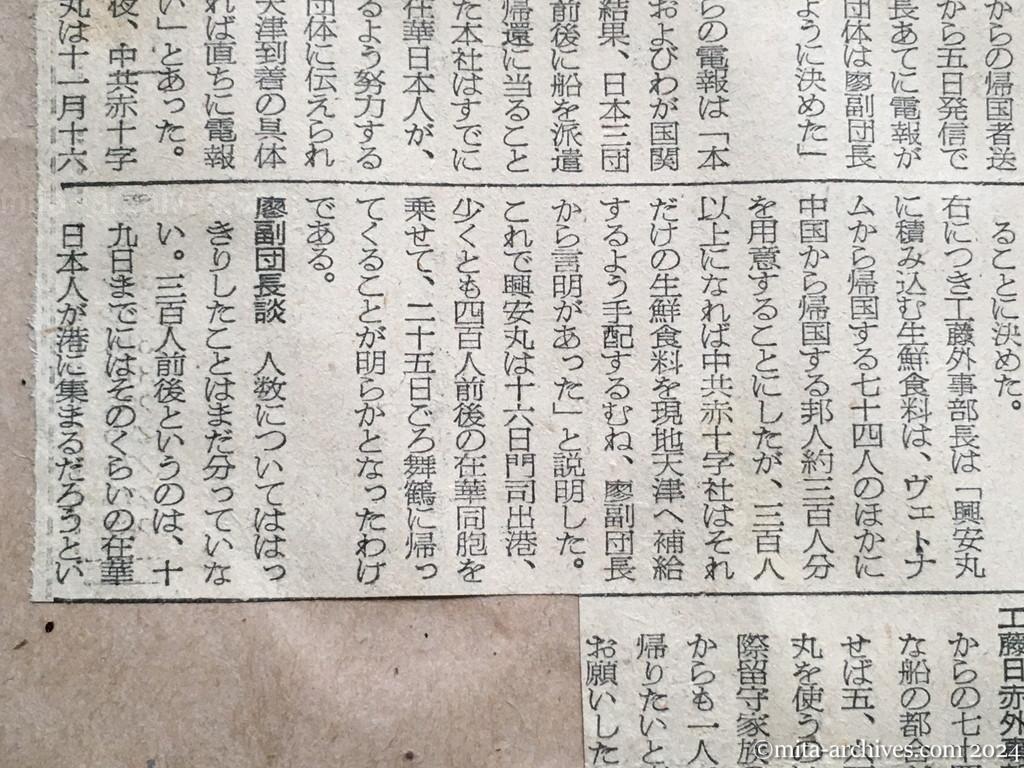 からの帰国者送
から五日発信で
長あてに電報が
団体は廖副団長
ように決めた」
らの電報は「本
およびわが国関
結果、日本三団
前後に船を派遣
帰還に当ること
た本社はすでに
在華日本人が、
るよう努力する
団体に伝えられ
天津到着の具体
れば直ちに電報
い」とあった。
夜、中共赤十字
丸は十一月十六
ることに決めた。
右につき工藤外事部長は「興安丸
に積み込む生鮮食料は、ヴェトナ
ムから帰国する七十四人のほかに
中国から帰国する邦人約三百人分
を用意することにしたが、三百人
以上になれば中共赤十字社はそれ
だけの生鮮食料を現地天津へ補給
するよう手配するむね、廖副団長
から言明があった」と説明した。
これで興安丸は十六日門司出港、
少くとも四百人前後の在華同胞を
乗せて、二十五日ごろ舞鶴に帰っ
てくることが明らかとなったわけ
である。
廖副団長談 人数についてははっ
きりしたことはまだ分っていな
い。三百人前後というのは、十
九日までにはそのくらいの在華
日本人が港に集まるだろうとい
工藤日赤外事
からの七
な船の都合
せば五、
丸を使う
際留守家族
からも一人
帰りたいと
お願いした
©mita-archives.com 2024